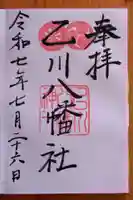 奉拝
乙川八幡社
令和七年七月二十六日